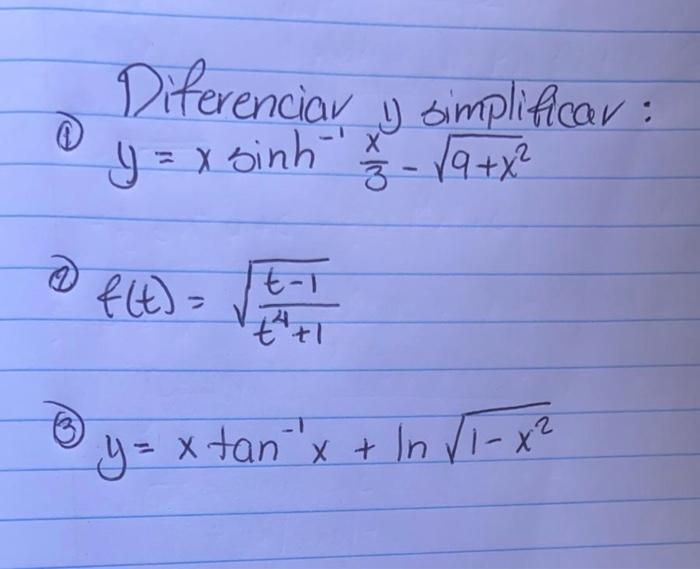 Diferenciar y simplificar:
① y = x sinh⁻¹ x/3 - √(9+x²)
② f(t) = √((t-1)/(t⁴+1))
③ y = x tan⁻¹x + ln √(1-x²)